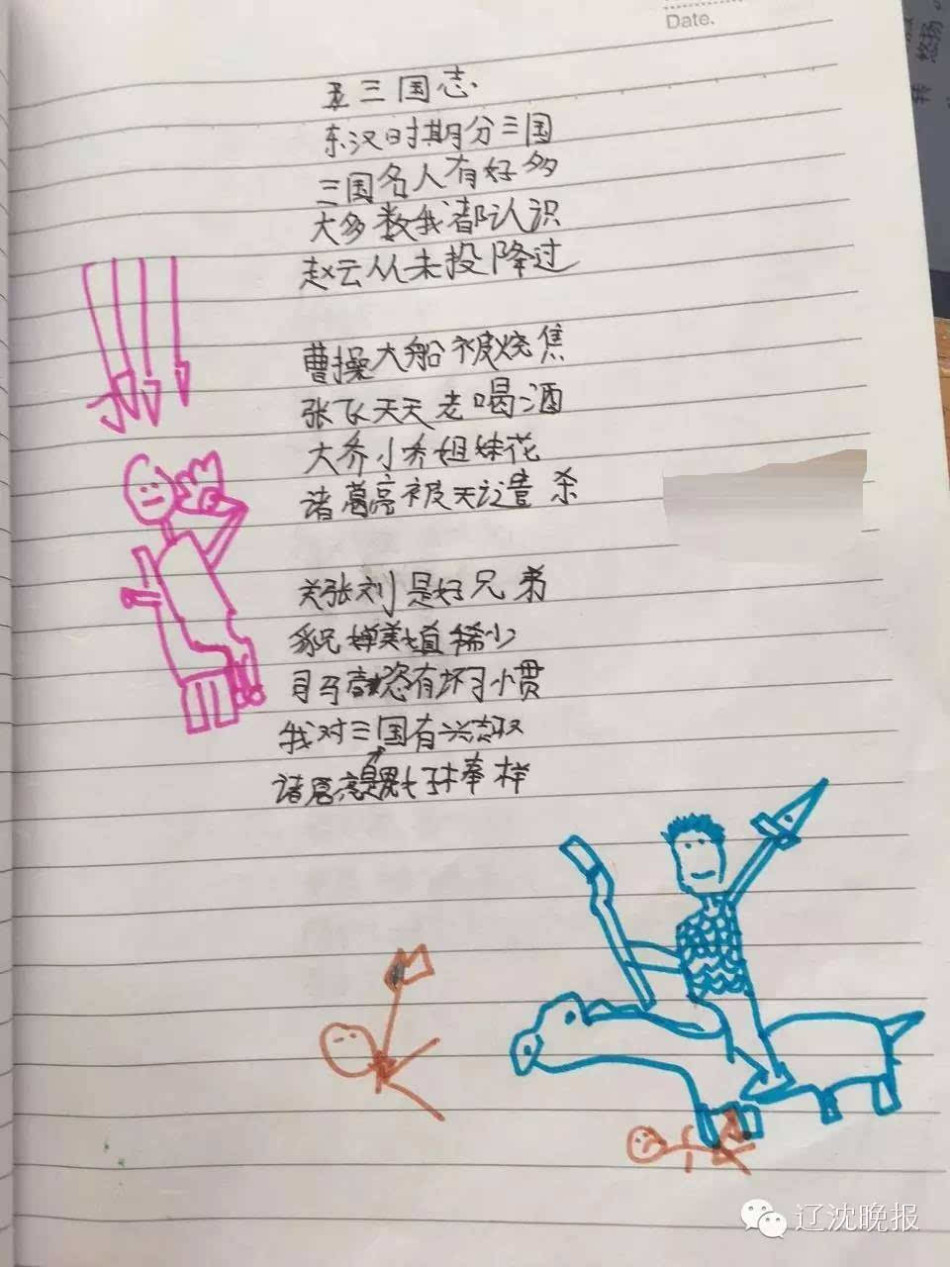 Date.
三国志
东汉时期分三国
三国名人有好多
大多数我都认识
赵云从未投降过
曹操大船被烧焦
张飞天天老喝酒
大乔小乔姐妹花
诸葛亮被天谴杀
关张刘是好兄弟
美 稀少
司马 有坏习惯
我对三国有兴趣
诸葛亮是 棒
转 悠扬
辽沈晚报